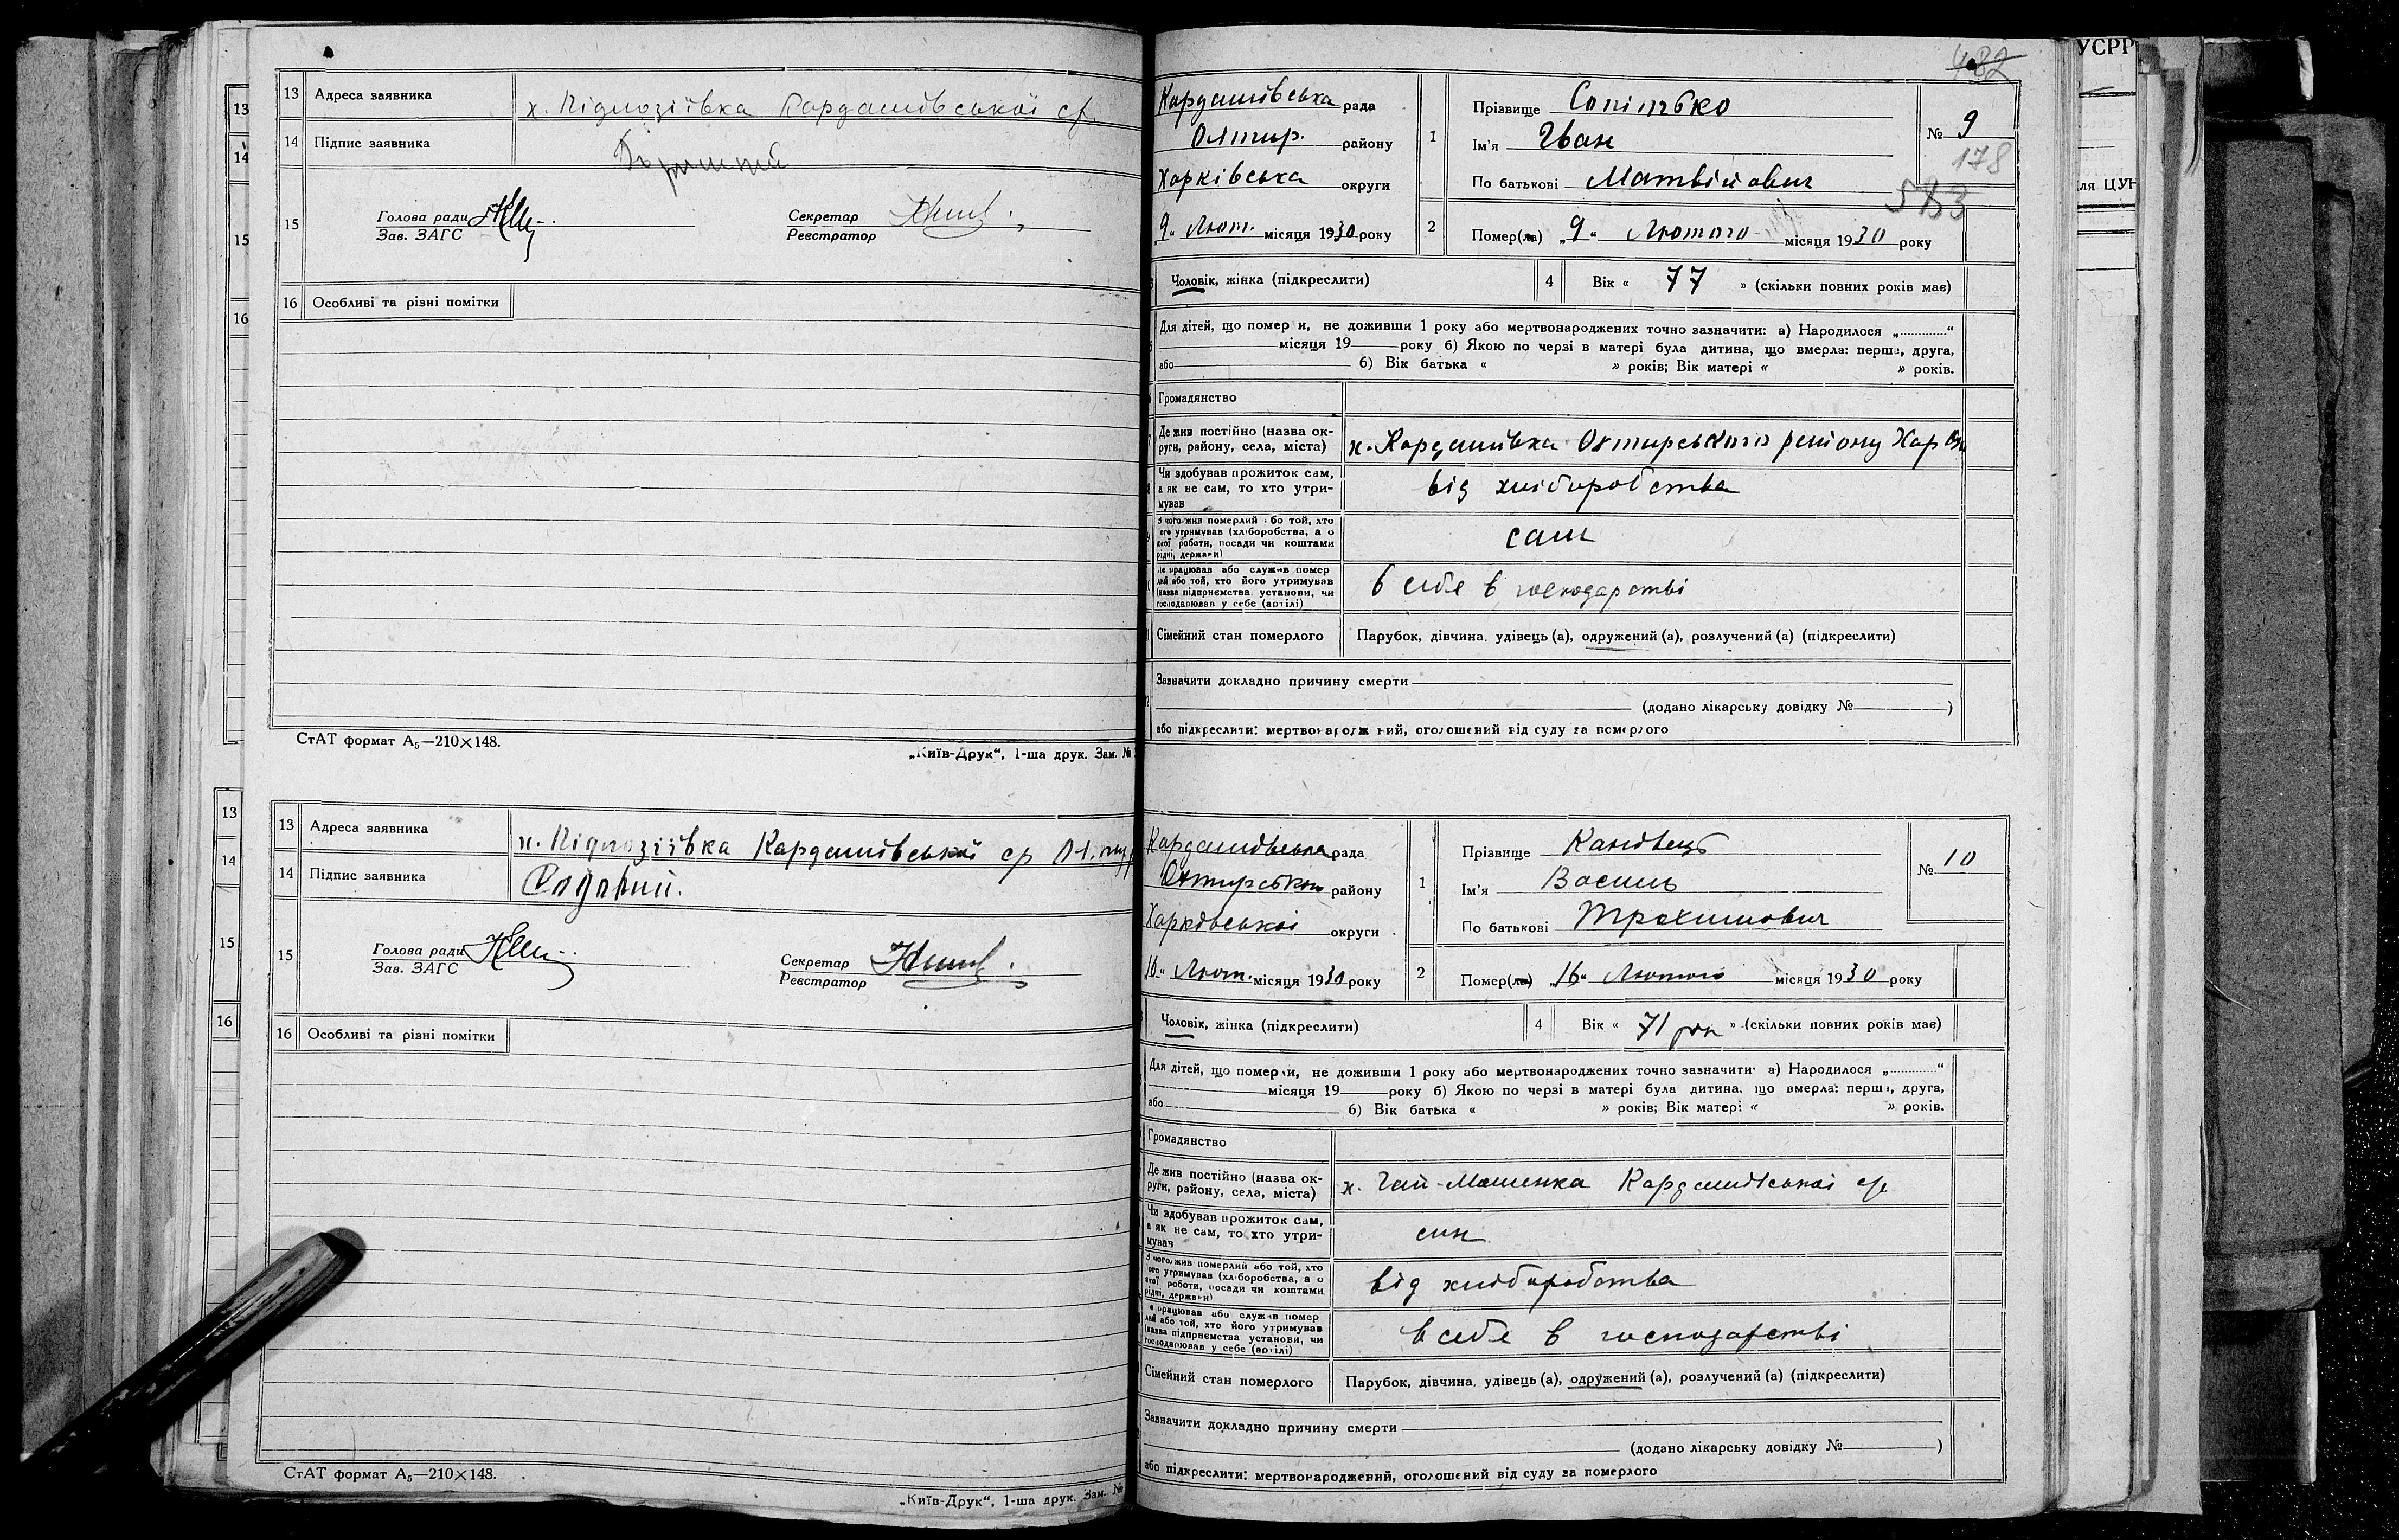 13 Адреса заявника х. Підлозіївка Кардашівської ср.
14 Підпис заявника
15 Голова ради Секретар
Зав. ЗАГС Реєстратор
16 Особливі та різні помітки
СтАТ формат А₅—210×148.
„Київ-Друк“, 1-ша друк. Зам. №
13 Адреса заявника х. Підлозіївка Кардашівської ср
14 Підпис заявника
15 Голова ради Секретар
Зав. ЗАГС Реєстратор
16 Особливі та різні помітки
СтАТ формат А₅—210×148.
„Київ-Друк“, 1-ша друк. Зам. №
13
14
15
16
13
14
15
16
482
Кардашівська рада
Охтир. району
Харківська округи
9 „ Лют. місяця 1930 року
1 Прізвище Сопітько
Ім'я Іван
По батькові Матвійович
№ 9
178
583
2 Помер(ла) „9“ Лютого місяця 1930 року
Чоловік, жінка (підкреслити) 4 Вік « 77 » (скільки повних років має)
Для дітей, що померли, не доживши 1 року або мертвонароджених точно зазначити: а) Народилося „............“
місяця 19 року б) Якою по черзі в матері була дитина, що вмерла: перша, друга,
або б) Вік батька « » років; Вік матері « » років.
Громадянство
Де жив постійно (назва ок-
руги, району, села, міста) х. Кардашівка Охтирського району Хар окр
Чи здобував прожиток сам,
а як не сам, то хто утри-
мував від хліборобства
З чого жив померлий або той, хто
його утримував (хліборобства, а о
якої роботи, посади чи коштами
рідні, держави) сам
Де працював або служив помер
лий або той, хто його утримував
(назва підприємства установи, чи
господарював у себе (артілі) в себе в господарстві
Сімейний стан померлого Парубок, дівчина, удівець (а), одружений (а), розлучений (а) (підкреслити)
Зазначити докладно причину смерти
(додано лікарську довідку № )
або підкреслити: мертвонароджений, оголошений від суду за померлого
Кардашівська рада
Охтирського району
Харківської округи
16 „ Лют. місяця 1930 року
1 Прізвище Канівець
Ім'я Василь
По батькові Трохимович
№ 10
2 Помер(ла) „16“ Лютого місяця 1930 року
Чоловік, жінка (підкреслити) 4 Вік « 71 рок » (скільки повних років має)
Для дітей, що померли, не доживши 1 року або мертвонароджених точно зазначити: а) Народилося „............“
місяця 19 року б) Якою по черзі в матері була дитина, що вмерла: перша, друга,
або б) Вік батька « » років; Вік матері « » років.
Громадянство
Де жив постійно (назва ок-
руги, району, села, міста) х. Гай-Мошенка Кардашівської ср
Чи здобував прожиток сам,
а як не сам, то хто утри-
мував син
З чого жив померлий або той, хто
його утримував (хліборобства, а о
якої роботи, посади чи коштами
рідні, держави) від хліборобства
Де працював або служив помер
лий або той, хто його утримував
(назва підприємства установи, чи
господарював у себе (артілі) в себе в господарстві
Сімейний стан померлого Парубок, дівчина, удівець (а), одружений (а), розлучений (а) (підкреслити)
Зазначити докладно причину смерти
(додано лікарську довідку № )
або підкреслити: мертвонароджений, оголошений від суду за померлого
УСРР
ля ЦУН